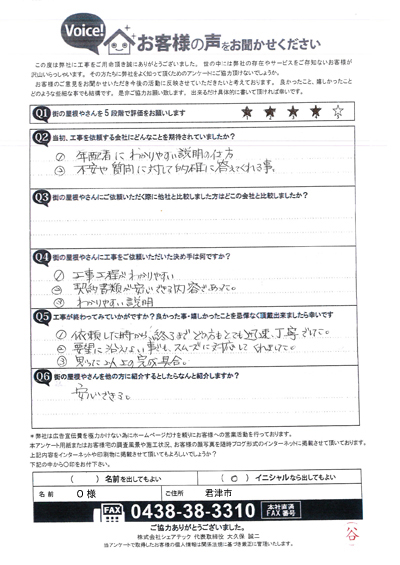 Voice!
お客様の声をお聞かせください
この度は弊社に工事をご用命頂き誠にありがとうございました。世の中には弊社の存在やサービスをご存知ないお客様が
沢山いらっしゃいます。その方たちに弊社をよく知って頂くためのアンケートにご協力頂けないでしょうか。
お客様のご意見をお聞かせいただき今後の活動に反映させていただければと考えております。良かったこと、嬉しかったこと
どのような些細な事でも結構です。是非ご協力お願い致します。出来るだけ具体的に書いて頂ければ幸いです。
Q1 街の屋根やさんを5段階で評価をお願いします ★ ★ ★ ★ ☆
Q2 当初、工事を依頼する会社にどんなことを期待されていましたか?
① 年配者にわかりやすい説明の仕方
② 不安や質問に対して的確に答えてくれる事。
Q3 街の屋根やさんにご依頼いただく際に他社と比較しました方はどこの会社と比較しましたか?
Q4 街の屋根やさんに工事をご依頼いただいた決め手は何ですか?
① 工事工程がわかりやすい
② 契約書類が安心できる内容であった。
③ わかりやすい説明
Q5 工事が終わってみていかがですか?良かった事・嬉しかったことを忌憚なく頂戴出来ましたら幸いです
① 依頼した時から、終るまでどの方もとても迅速、丁寧でした。
② 要望に沿えない事も、スムーズに対応してくれました。
③ 思った以上の完成具合。
Q6 街の屋根やさんを他の方に紹介するとしたらなんと紹介しますか?
安心できる。
*弊社は広告宣伝費を極力かけない為にホームページだけを頼りにお客様への営業活動を行っております。
本アンケート用紙またはお客様宅の調査風景や施工状況、お客様の顔写真を随時ブログ形式のインターネットに掲載させて頂いております。
上記内容をインターネットや印刷物に掲載させて頂いてもよろしいでしょうか?
下記の中から○印をお付け下さい。
( ) 名前を出してもよい (○) イニシャルなら出してもよい
名前 O様 ご住所 君津市
FAX 0438-38-3310 本社直通 FAX番号
ご協力ありがとうございました。
株式会社シェアテック 代表取締役 大久保 誠二
当アンケートで取得したお客様の個人情報は関係法規に基づき厳正に管理いたします。
谷